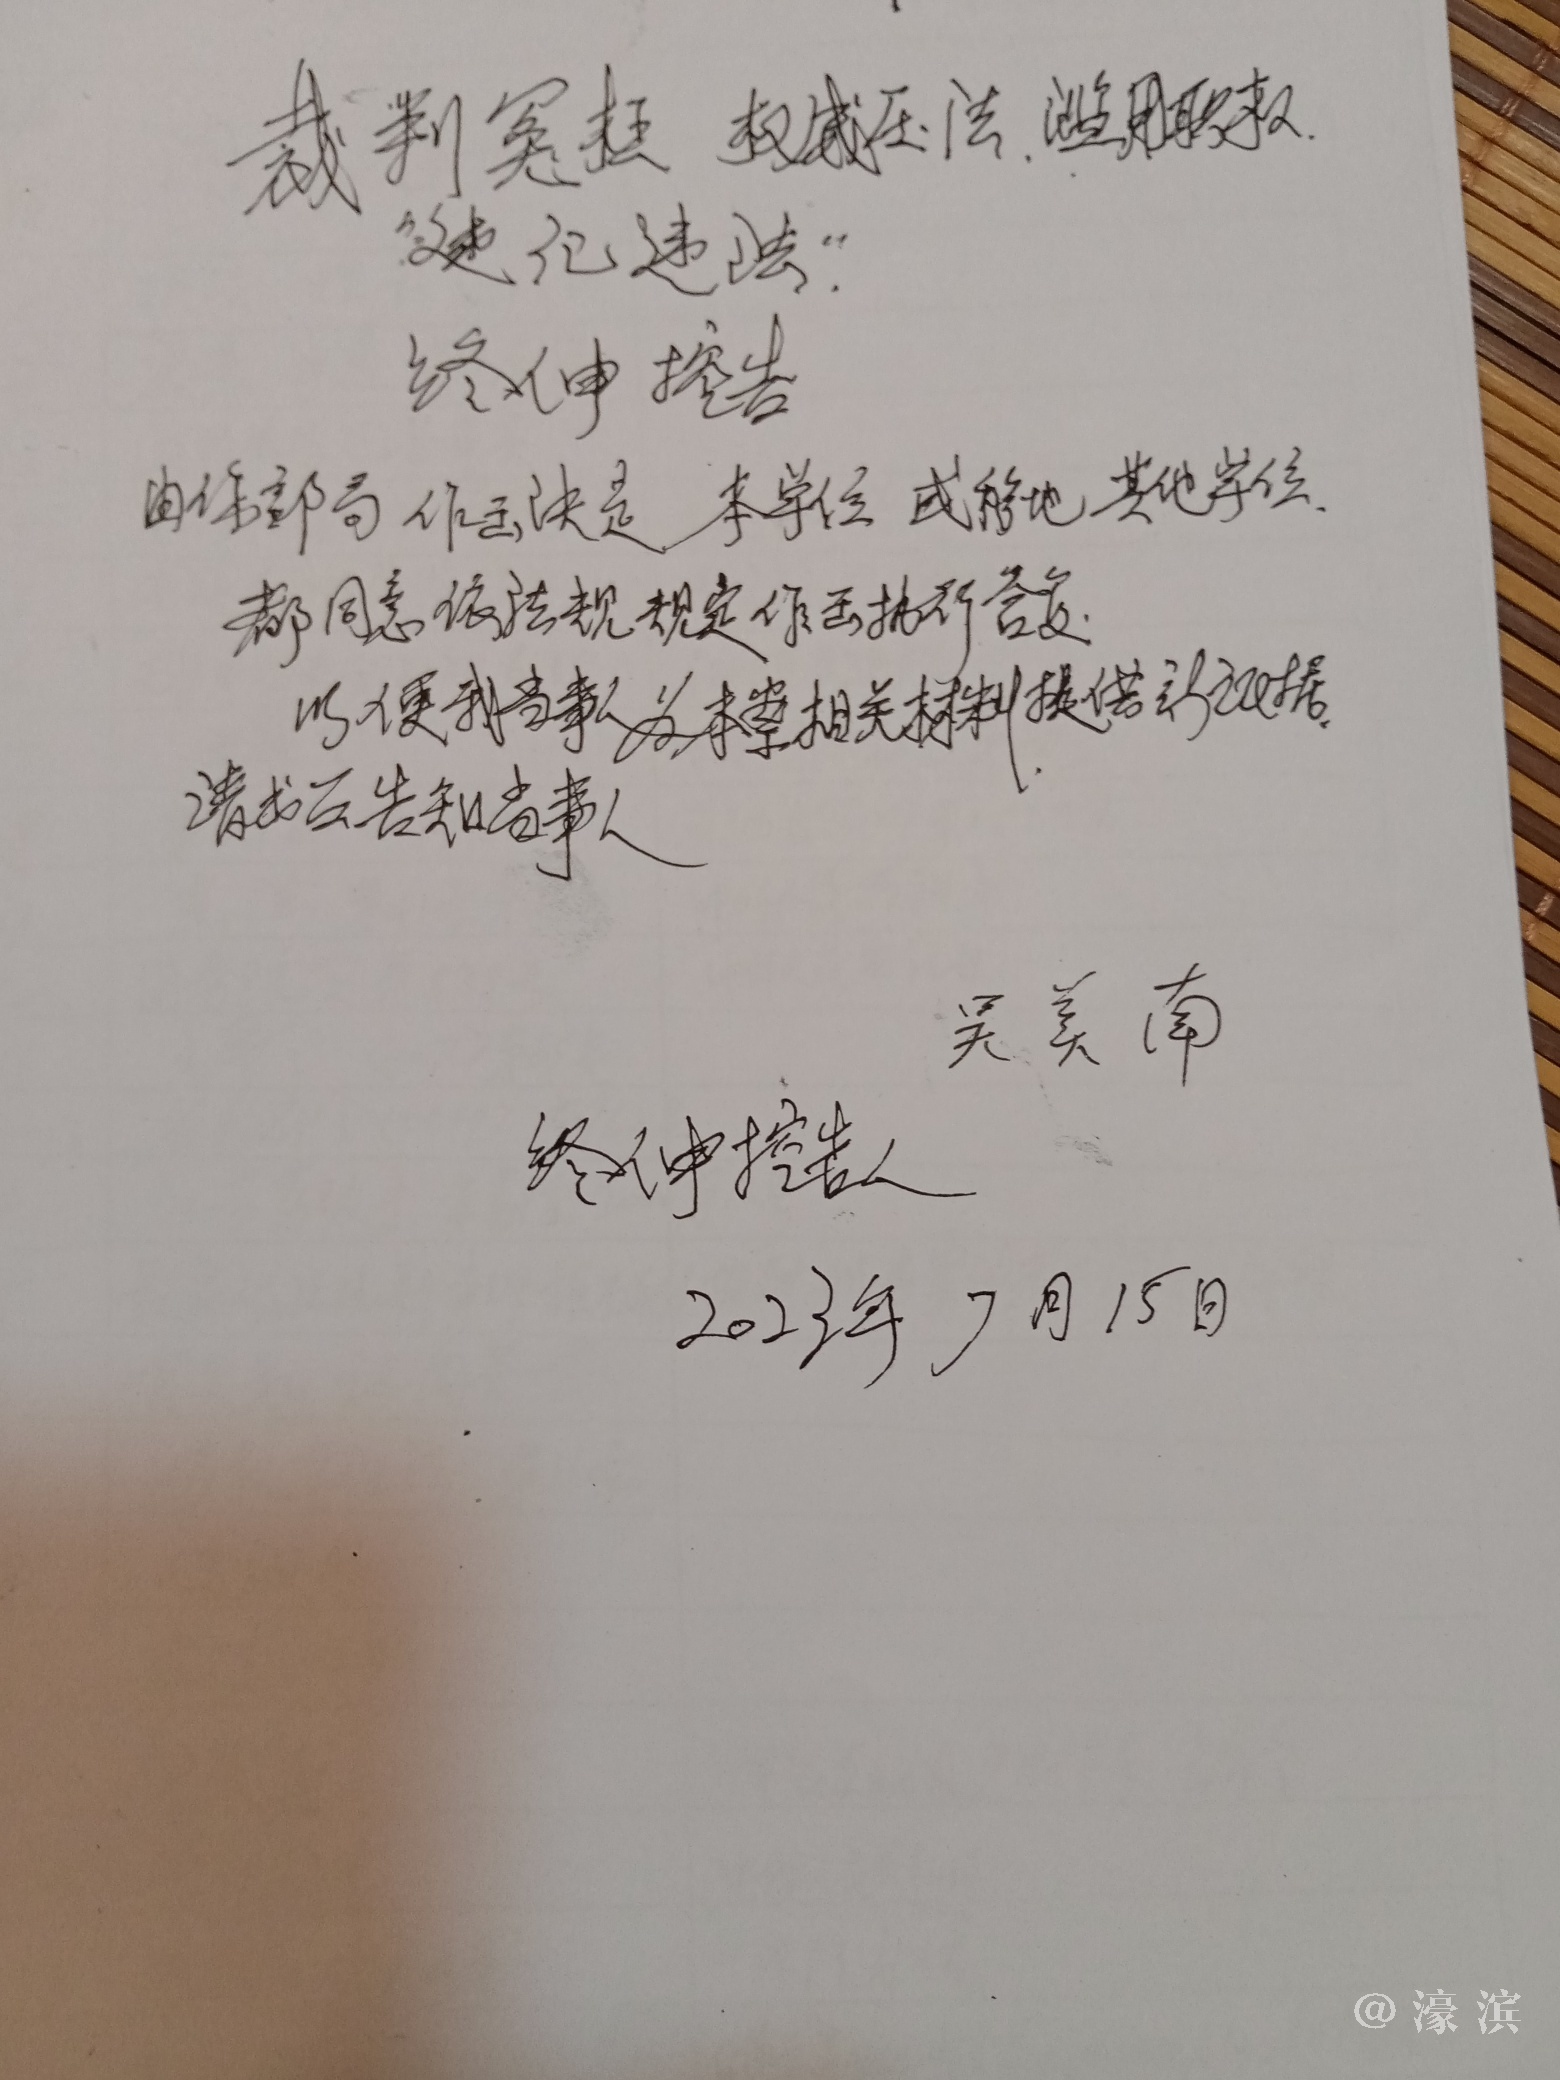 裁判冤枉 权威压法.滥用职权.
"违纪违法"
终伸控告
由你部局作出决定.本单位或移地其他单位.
都同意依法规规定作出执行答复.
以便利当事人为本案相关材料提供新证据.
请书面告知当事人
吴美南
终伸控告人
2023年7月15日
@濠滨